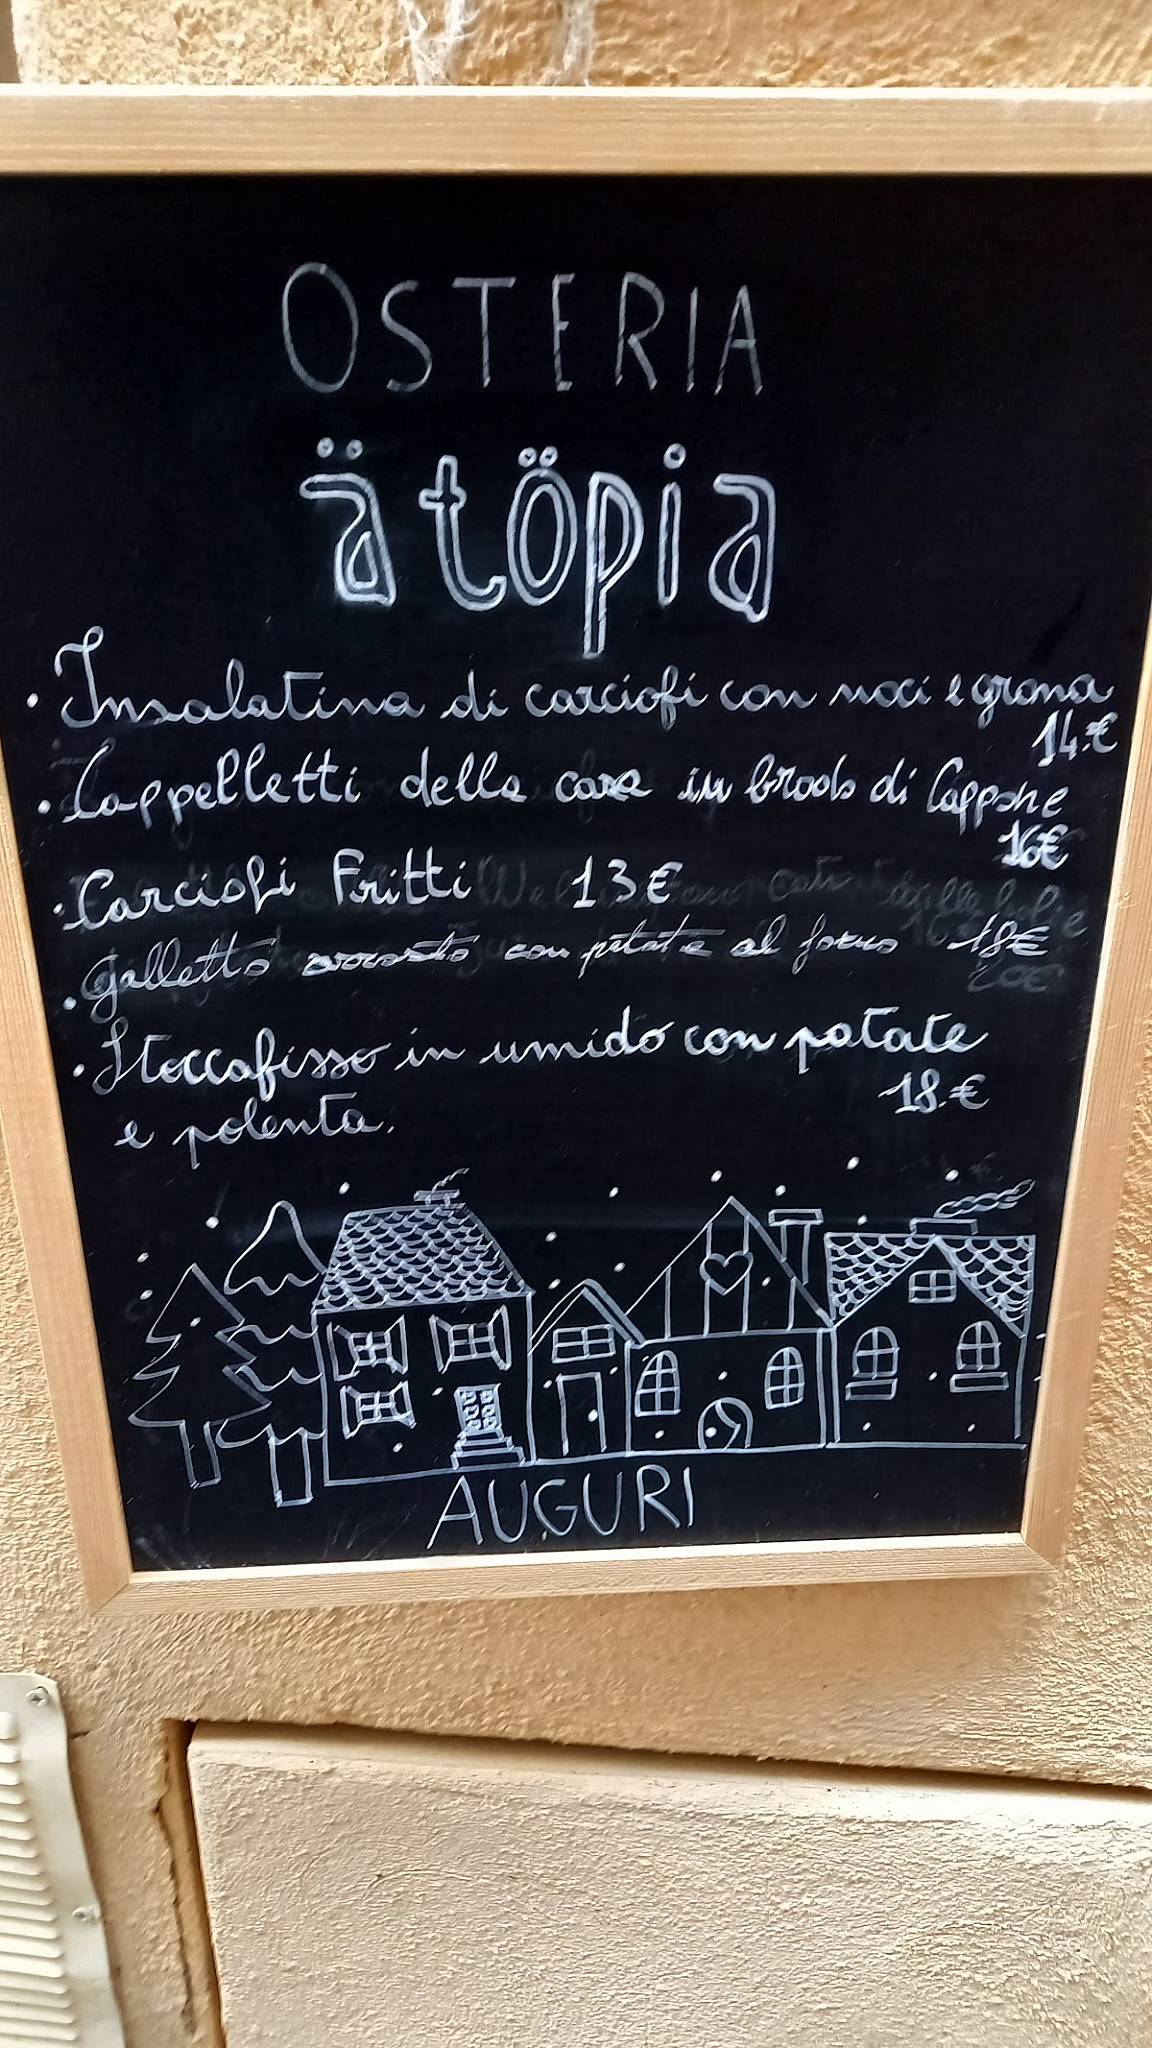 OSTERIA
ätöpia
• Insalatina di carciofi con noci e grana
14.€
• Cappelletti della casa in brodo di Cappone
16€
• Carciofi Fritti 13€
• galletto arrosto con patate al forno 18€
• Stoccafisso in umido con patate
18.€
e polenta.
AUGURI